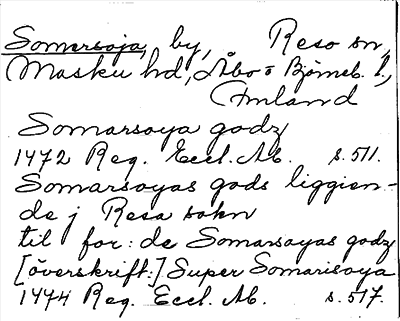 Somersoja, by, Reso sn,
Masku hd, Åbo o Björneb. l.,
Finland
Somarsoya godz
1472 Reg. Eccl. Ab. s. 511.
Somarsoyas gods liggien-
de j Resa sokn
til for: de Somarsoyas godz
[överskrift:] Super Somarisoya
1474 Reg. Eccl. Ab. s. 517.